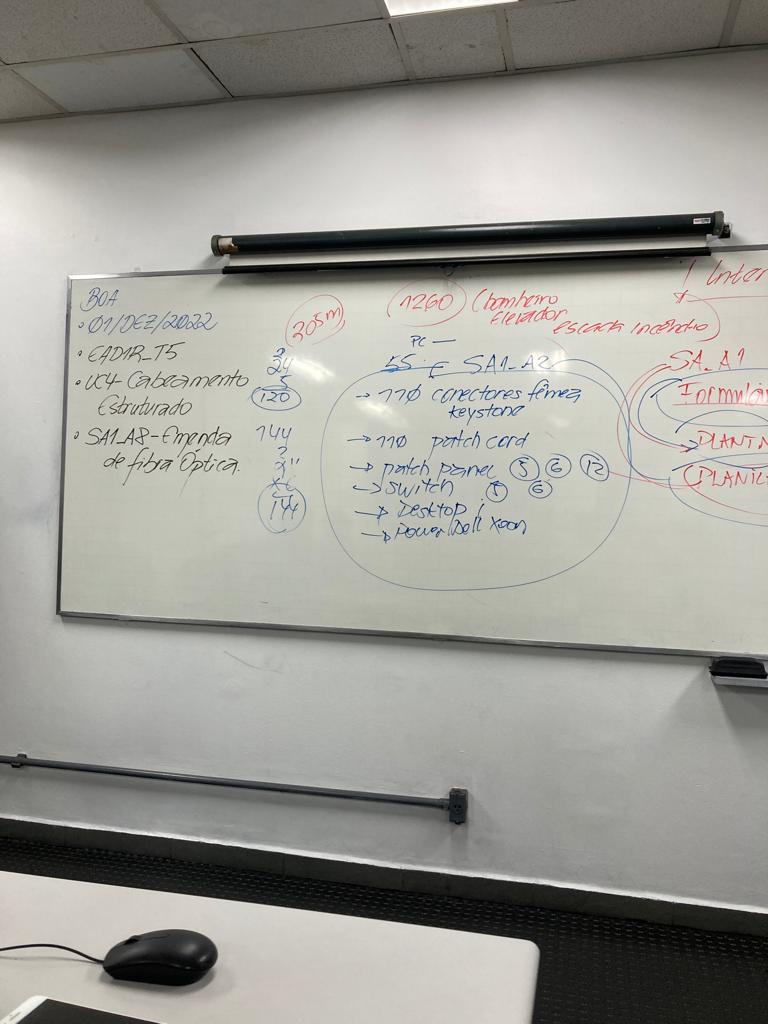 BOA
• 01/DEZ/2022
• EAD1R_T5
• UC4-Cabeamento
Estruturado
• SA1_A8-Emenda
de fibra Óptica.
205m
24
5
120
144
144
1260 (banheiro
Elevador
escada incêndio)
PC —
55 SA1_A2
→ 110 conectores fêmea
keystone
→ 110 patch cord
→ patch panel 5 6 12
→ switch 6
→ Desktop i
→ Power Dell Xeon
! Inter
SA_A1
Formulá
→ PLANTA
(PLANIL